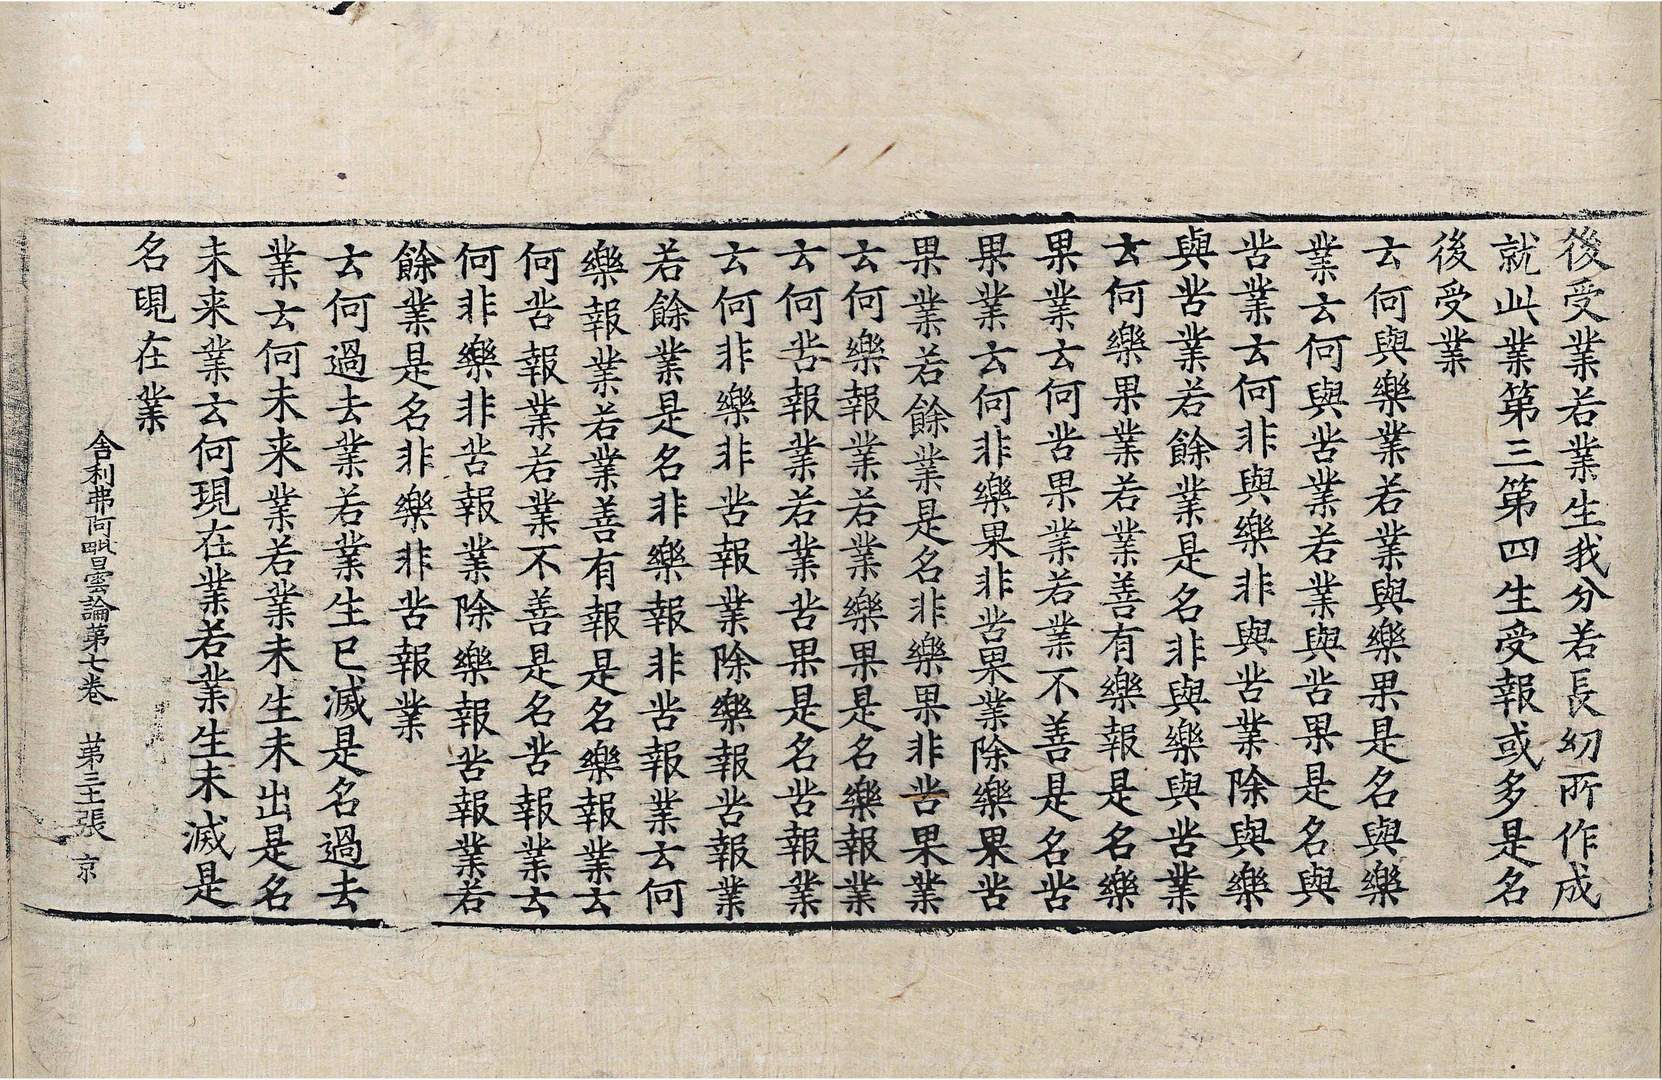 後受業若業生我分若長幼所作成
就此業第三第四生受報或多是名
後受業
云何與樂業若業與樂果是名與樂
業云何與苦業若業與苦果是名與
苦業云何非與樂非與苦業除與樂
與苦業若餘業是名非與樂與苦業
云何樂果業若業善有樂報是名樂
果業云何苦果業若業不善是名苦
果業云何非樂果非苦果業除樂果苦
果業若餘業是名非樂果非苦果業
云何樂報業若業樂果是名樂報業
云何苦報業若業苦果是名苦報業
云何非樂非苦報業除樂報苦報業
若餘業是名非樂報非苦報業云何
樂報業若業善有報是名樂報業云
何苦報業若業不善是名苦報業云
何非樂非苦報業除樂報苦報業若
餘業是名非樂非苦報業
云何過去業若業生已滅是名過去
業云何未来業若業未生未出是名
未来業云何現在業若業生未滅是
名現在業
舍利弗阿毗曇論第七卷 第三十一張 京